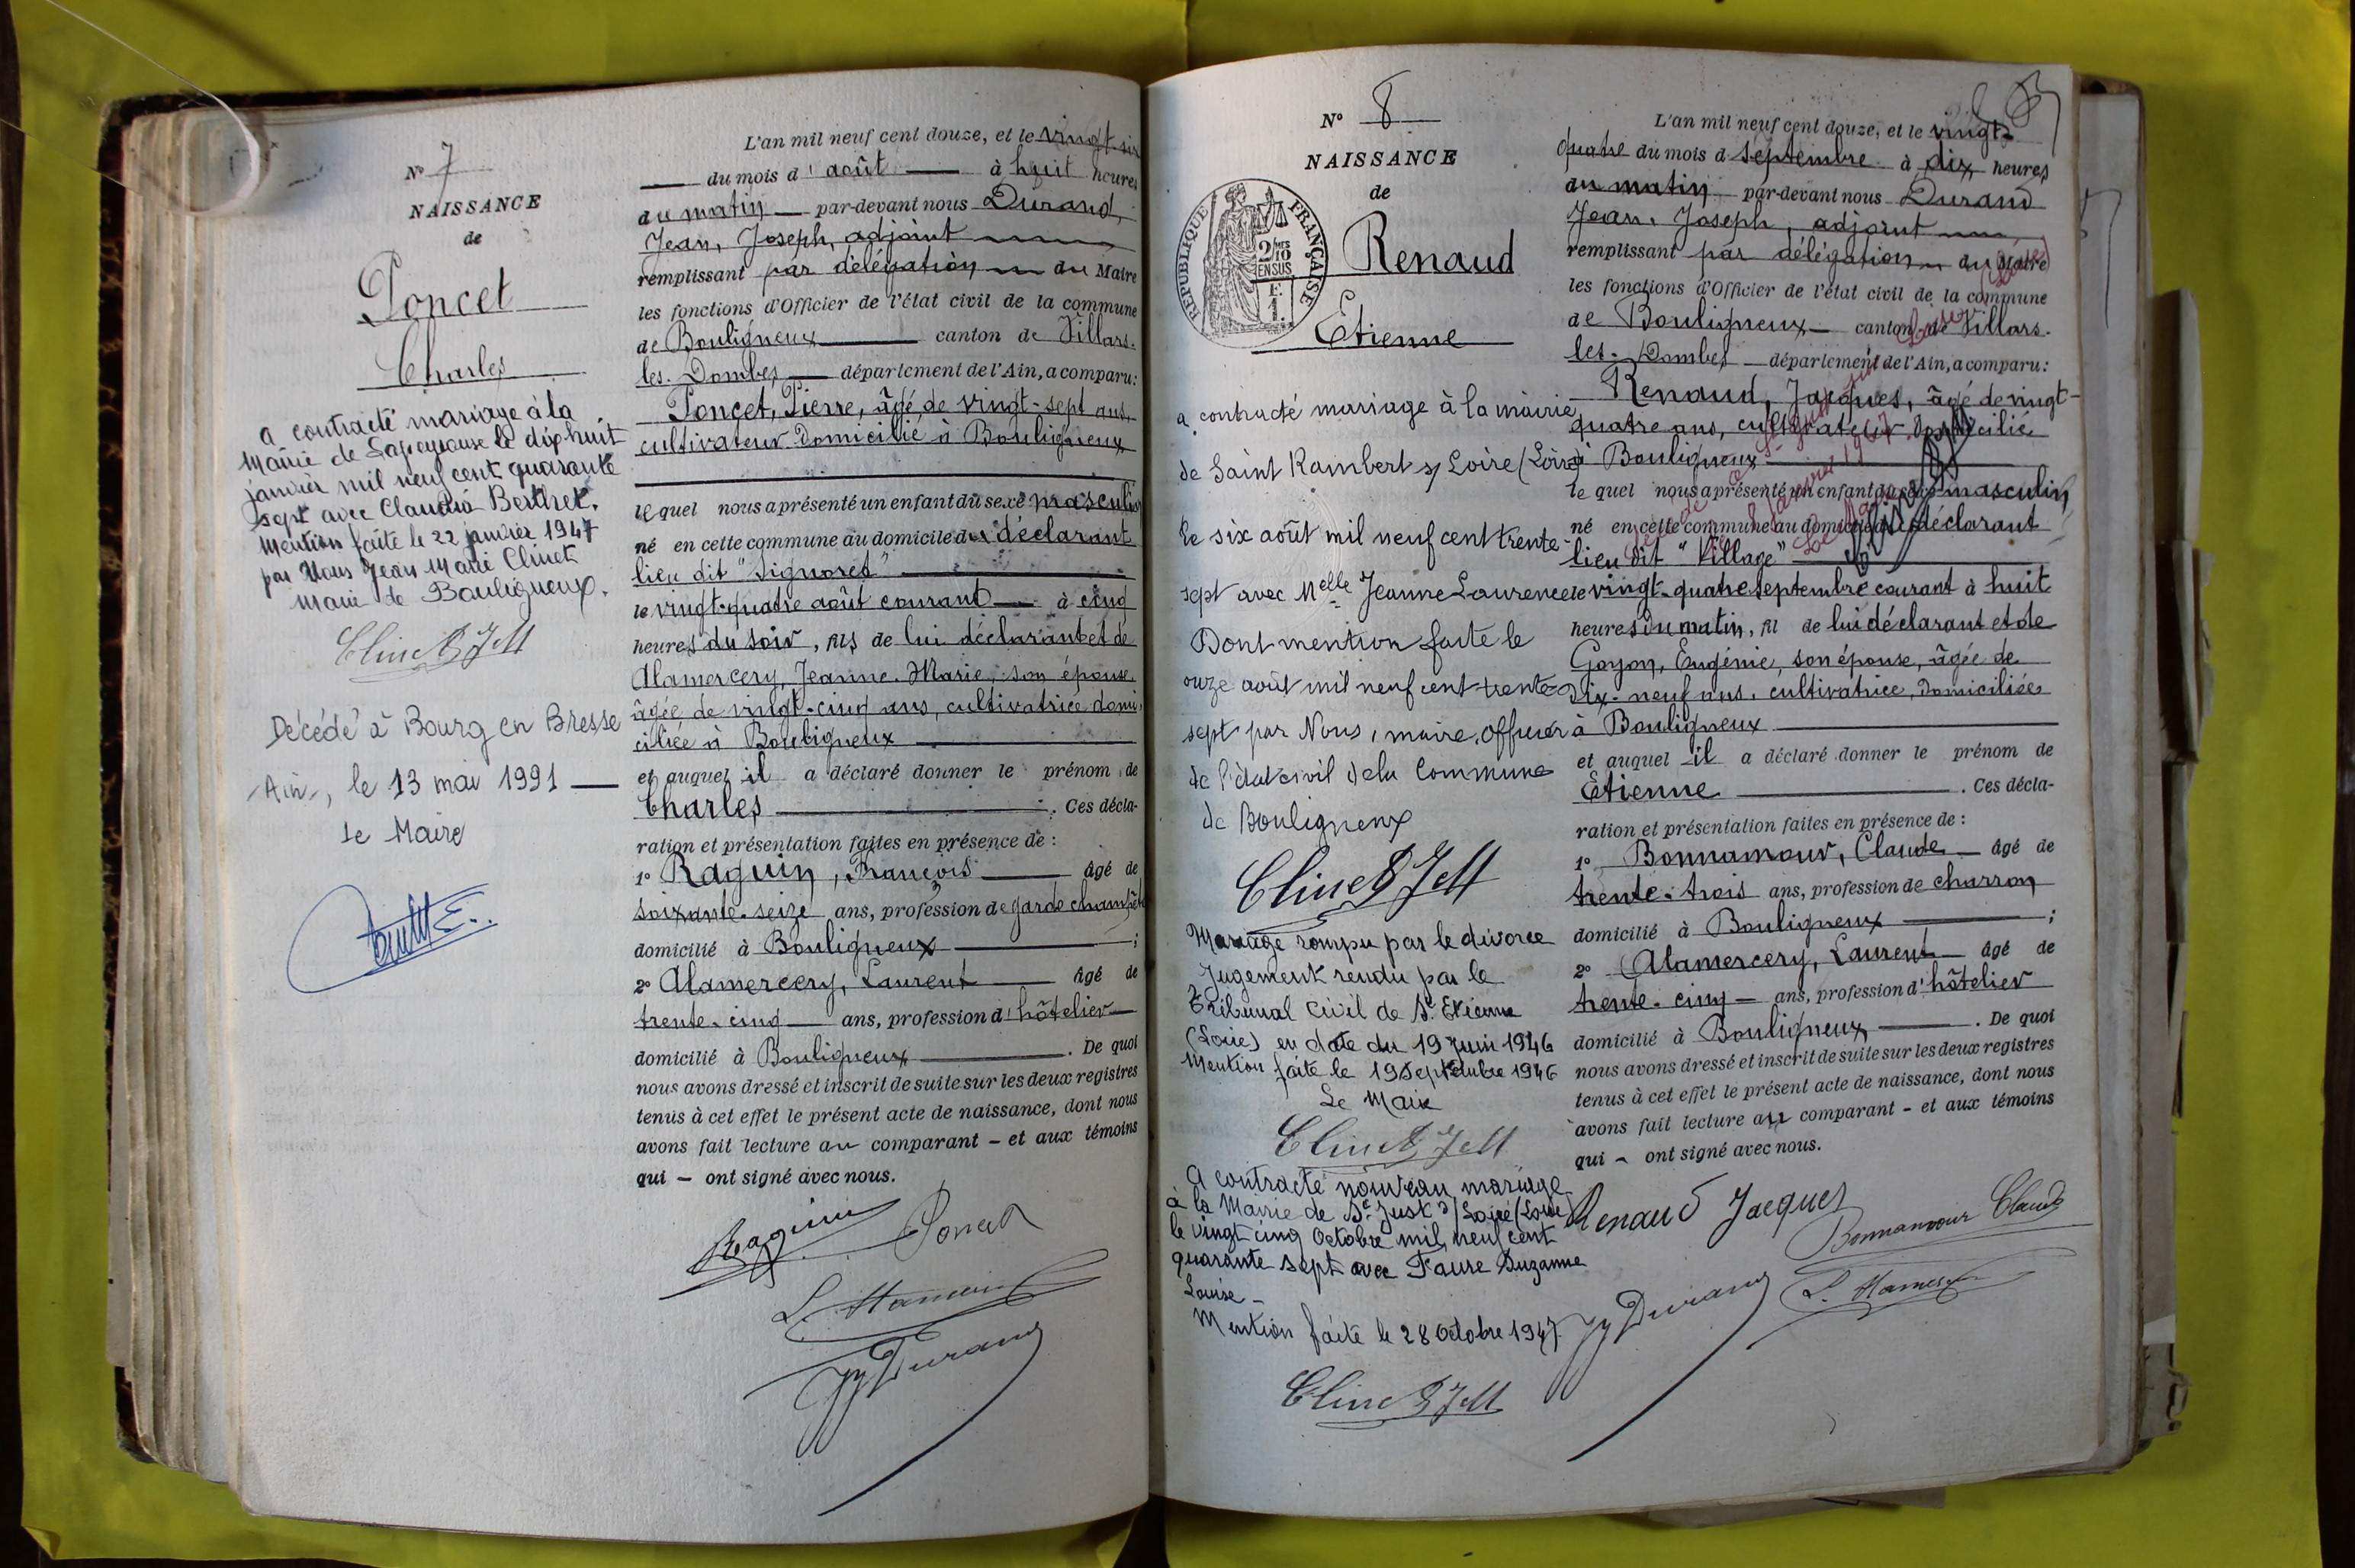 N° 7
NAISSANCE
de
Poncet
Charles
a contracté mariage à la
Mairie de Lapeyrouse le dix huit
janvier mil neuf cent quarante
sept avec Claudia Berthet.
Mention faite le 22 janvier 1947
par Nous Jean Marie Clinet
Maire de Bouligneux.
Clinet JM
Décédé à Bourg en Bresse
-Ain-, le 13 mai 1991
Le Maire
L'an mil neuf cent douze, et le vingt-six
du mois d'août à huit heures
du matin par-devant nous Durand,
Jean, Joseph, adjoint
remplissant par délégation du Maire
les fonctions d'Officier de l'état civil de la commune
de Bouligneux canton de Villars-
les-Dombes département de l'Ain, a comparu:
Poncet, Pierre, âgé de vingt-sept ans,
cultivateur domicilié à Bouligneux
lequel nous a présenté un enfant du sexe masculin
né en cette commune au domicile du déclarant
lieu dit "Signoret"
le vingt-quatre août courant à cinq
heures du soir, fils de lui déclarant et de
Alamercery, Jeanne-Marie, son épouse
âgée de vingt-cinq ans, cultivatrice domi-
ciliée à Bouligneux
et auquel il a déclaré donner le prénom de
Charles . Ces décla-
ration et présentation faites en présence de :
1° Raguin, François âgé de
soixante-seize ans, profession de garde champêtre
domicilié à Bouligneux ;
2° Alamercery, Laurent âgé de
trente-cinq ans, profession d'hôtelier
domicilié à Bouligneux . De quoi
nous avons dressé et inscrit de suite sur les deux registres
tenus à cet effet le présent acte de naissance, dont nous
avons fait lecture au comparant - et aux témoins
qui - ont signé avec nous.
Raguin Poncet
JJ Durand
N° 8
NAISSANCE
de
RÉPUBLIQUE FRANÇAISE
2/10
EN SUS
1 F.
Renaud
Etienne
a contracté mariage à la mairie
de Saint Rambert s/ Loire (Loire)
le six août mil neuf cent trente-
sept avec Melle Jeanne Laurence
Dont mention faite le
onze août mil neuf cent trente
sept par Nous, maire, officier
de l'état civil de la Commune
de Bouligneux
Clinet JM
Mariage rompu par le divorce
Jugement rendu par le
Tribunal Civil de St Etienne
(Loire) en date du 19 juin 1946
Mention faite le 19 septembre 1946
Le Maire
Clinet JM
A contracté nouveau mariage
à la Mairie de St Just s/ Loire (Loire)
le vingt cinq octobre mil neuf cent
quarante sept avec Faure Suzanne
Louise -
Mention faite le 28 octobre 1947.
Clinet JM
L'an mil neuf cent douze, et le vingt-
quatre du mois d septembre à dix heures
du matin par-devant nous Durand
Jean, Joseph, adjoint
remplissant par délégation du Maire
les fonctions d'Officier de l'état civil de la commune
de Bouligneux canton de Villars-
les-Dombes département de l'Ain, a comparu:
Renaud, Jacques, âgé de vingt-
quatre ans, cultivateur domicilié
à Bouligneux
lequel nous a présenté un enfant du sexe masculin
né en cette commune au domicile du déclarant
lieu dit "Village"
le vingt-quatre septembre courant à huit
heures du matin, fil de lui déclarant et de
Goyon, Eugénie, son épouse, âgée de
dix-neuf ans, cultivatrice, domiciliée
à Bouligneux
et auquel il a déclaré donner le prénom de
Etienne . Ces décla-
ration et présentation faites en présence de :
1° Bonnamour, Claude âgé de
trente-trois ans, profession de charron
domicilié à Bouligneux ;
2° Alamercery, Laurent âgé de
trente-cinq ans, profession d'hôtelier
domicilié à Bouligneux . De quoi
nous avons dressé et inscrit de suite sur les deux registres
tenus à cet effet le présent acte de naissance, dont nous
avons fait lecture au comparant - et aux témoins
qui - ont signé avec nous.
Renaud Jacques
Bonnamour Claude
JJ Durand